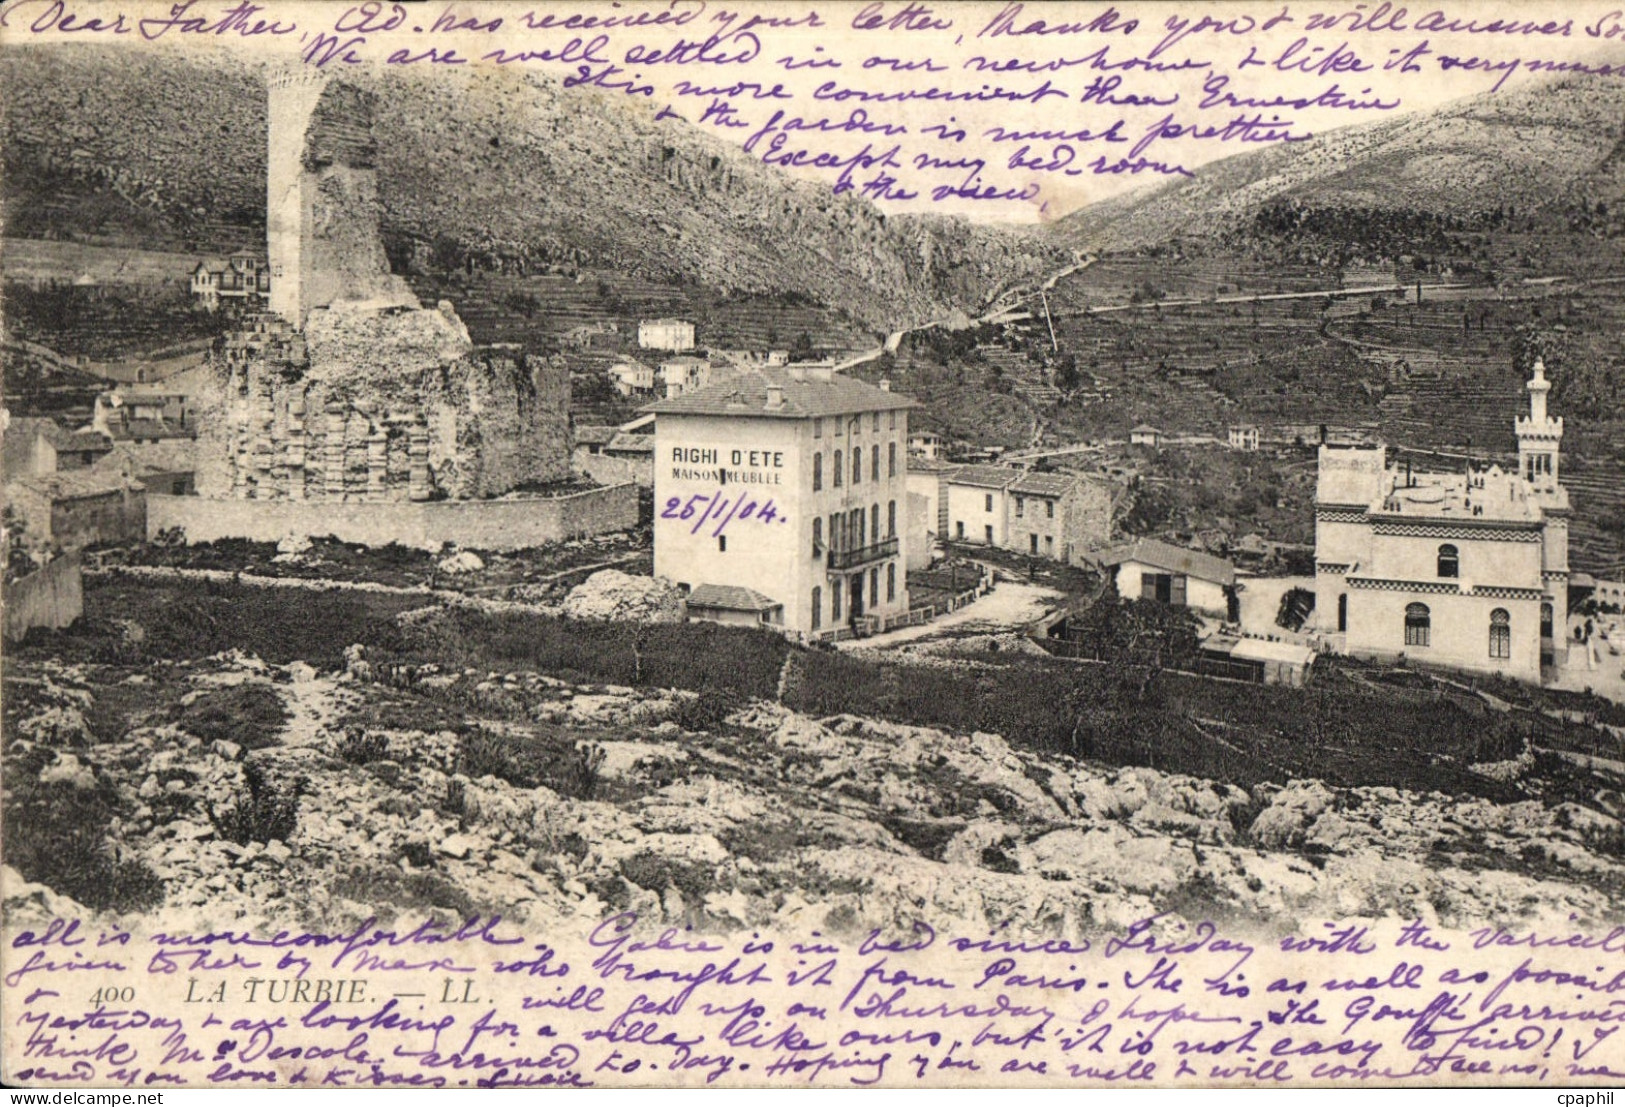 Dear Father, Ed. has received your letter, thanks you & will answer So
We are well settled in our new home, & like it very much
It is more convenient than Ernestine
& the garden is much prettier
Except my bed-room
& the view.
RIGHI D'ETE
MAISON MEUBLEE
25/1/04.
all is more comfortable. Gabie is in bed since Friday with the Varicell
given to her by Max who brought it from Paris. She is as well as possib
400 LA TURBIE. — LL.
& will get up on Thursday I hope. The Gouffé arrived
yesterday & are looking for a villa like ours, but it is not easy to find! I
think Mrs Descole arrived to-day. Hoping you are well & will come to see us, we
send you love & kisses. Lucie